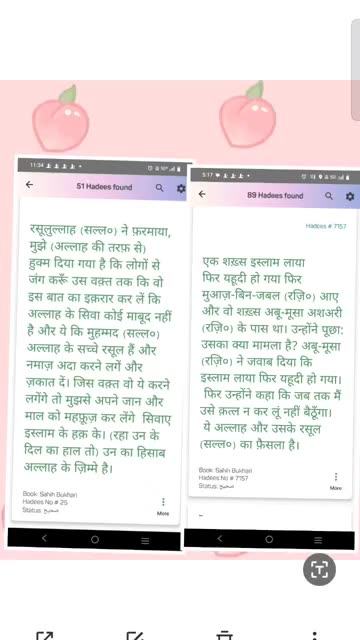 11:34
51 Hadees found
रसूलुल्लाह (सल्ल०) ने फ़रमाया,
मुझे (अल्लाह की तरफ़ से)
हुक्म दिया गया है कि लोगों से
जंग करूँ उस वक़्त तक कि वो
इस बात का इक़रार कर लें कि
अल्लाह के सिवा कोई माबूद नहीं
है और ये कि मुहम्मद (सल्ल०)
अल्लाह के सच्चे रसूल हैं और
नमाज़ अदा करने लगें और
ज़कात दें। जिस वक़्त वो ये करने
लगेंगे तो मुझसे अपने जान और
माल को महफ़ूज़ कर लेंगे सिवाए
इस्लाम के हक़ के। (रहा उन के
दिल का हाल तो) उन का हिसाब
अल्लाह के ज़िम्मे है।
Book: Sahih Bukhari
Hadees No # 25
Status: صحیح
More
5:17
89 Hadees found
Hadees # 7157
एक शख़्स इस्लाम लाया
फिर यहूदी हो गया फिर
मुआज़-बिन-जबल (रज़ि०) आए
और वो शख़्स अबू-मूसा अशअरी
(रज़ि०) के पास था। उन्होंने पूछा:
उसका क्या मामला है? अबू-मूसा
(रज़ि०) ने जवाब दिया कि
इस्लाम लाया फिर यहूदी हो गया।
फिर उन्होंने कहा कि जब तक मैं
उसे क़त्ल न कर लूं नहीं बैठूँगा।
ये अल्लाह और उसके रसूल
(सल्ल०) का फ़ैसला है।
Book: Sahih Bukhari
Hadees No # 7157
Status: صحیح
More